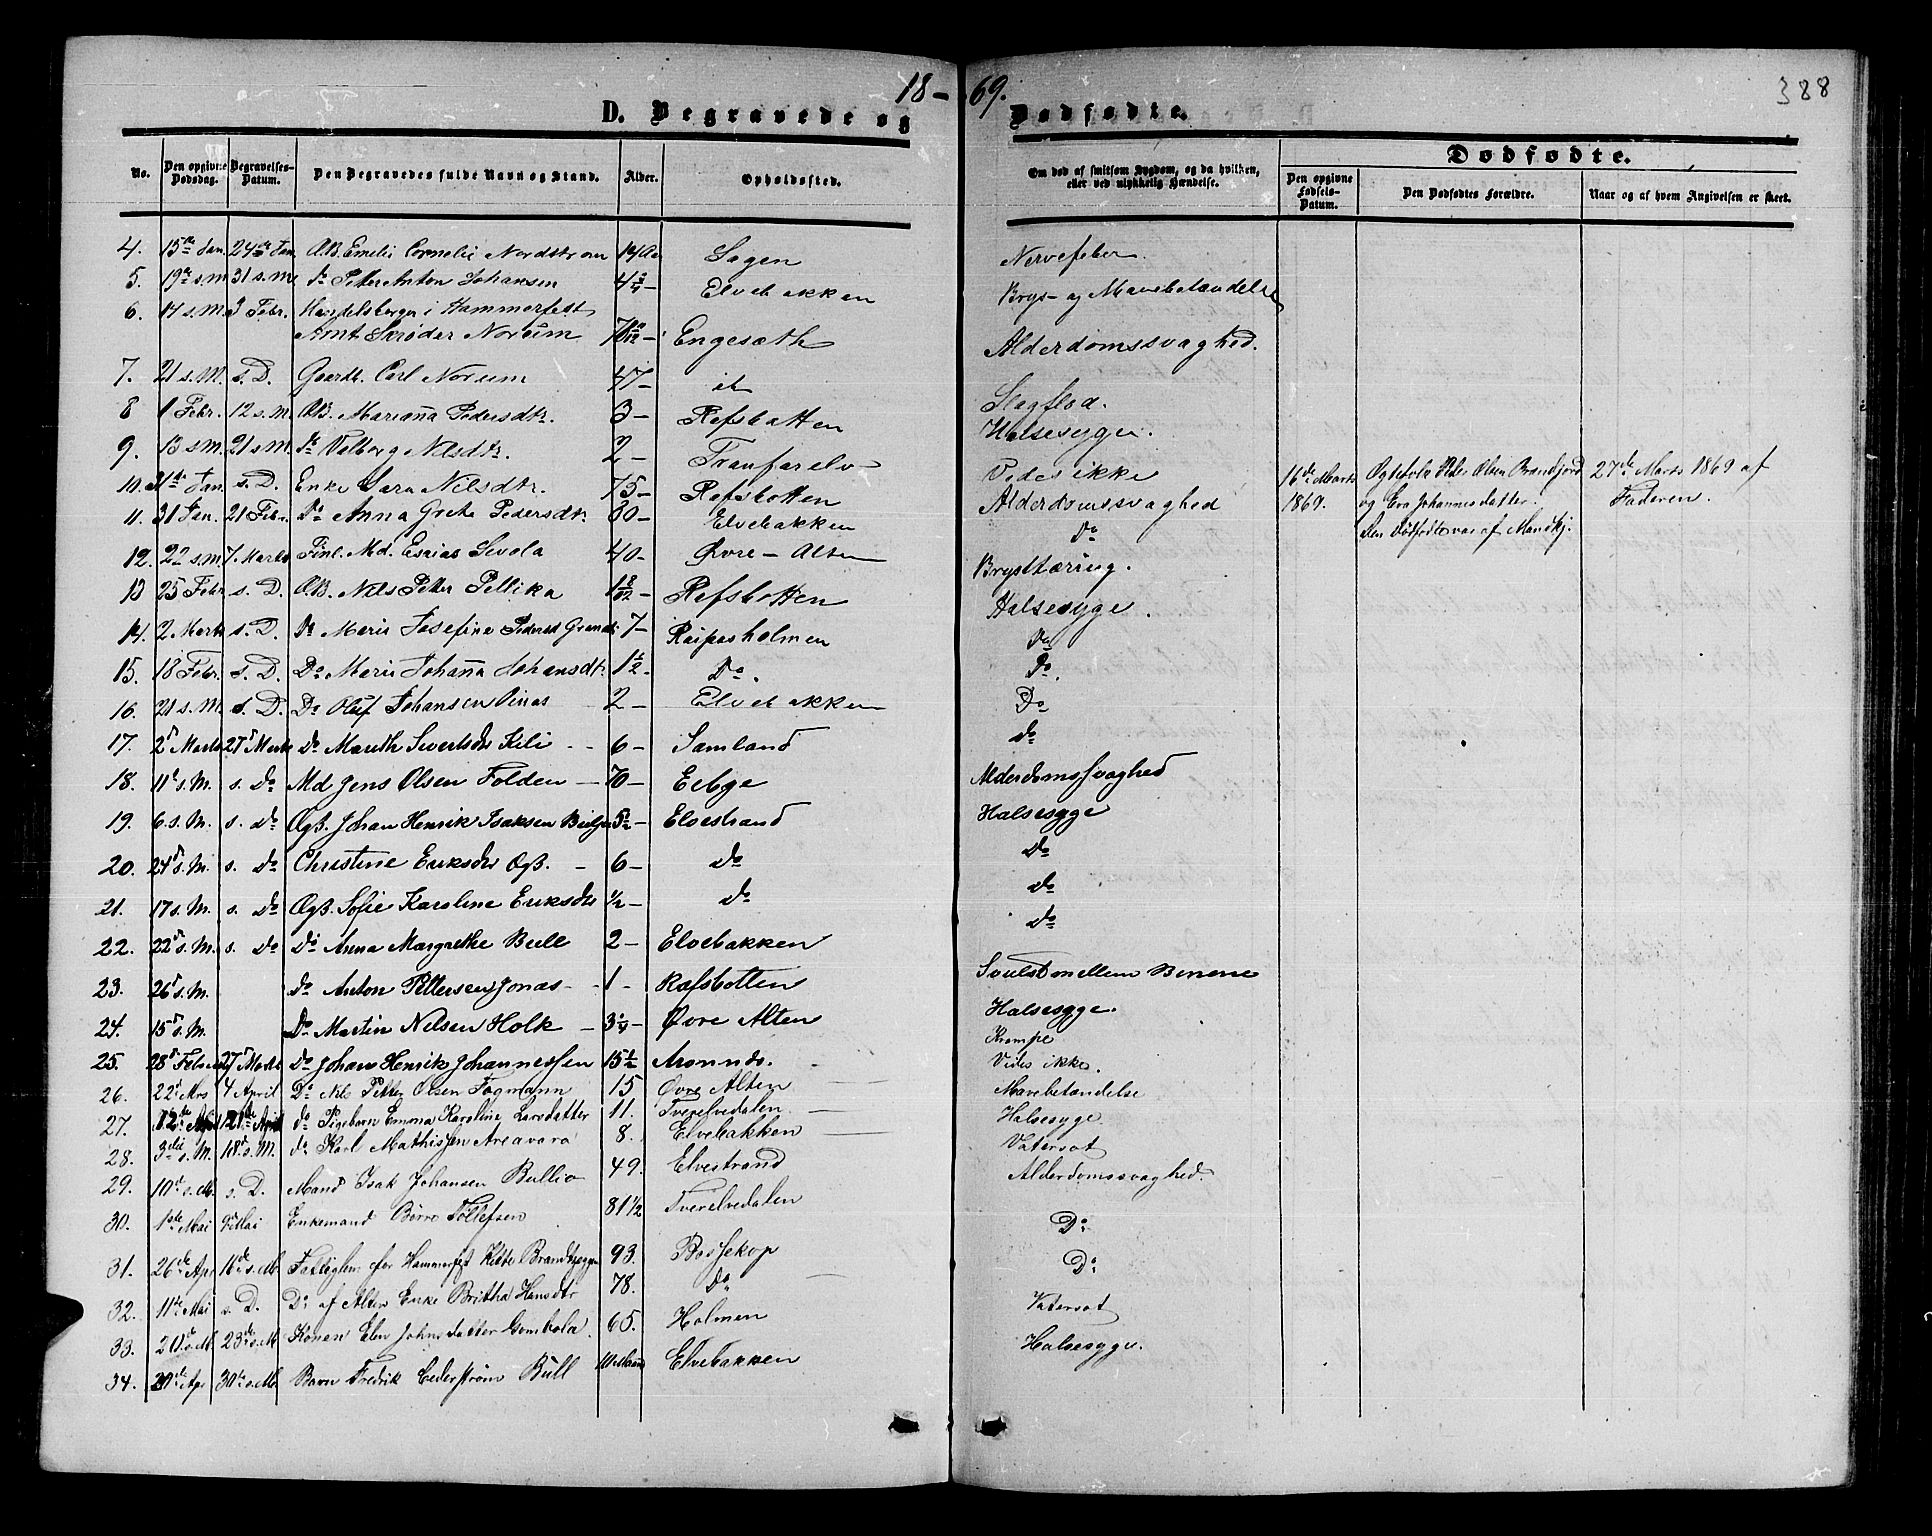 18-69.
388
D. Begravede og Dødfødte.
No. Den opgivne Dødsdag. Begravelses-Datum. Den Begravedes fulde Navn og Stand. Alder. Opholdssted. Om død af smitsom Sygdom, og da hvilken, eller ved ulykkelig Hændelse.
Dødfødte.
Den opgivne Fødsels-Datum. Den Dødfødtes Forældre. Naar og af hvem Angivelsen er skeet.
4. 15de Jan. 24de Jan. Emelie Cornelie Nordstrøm Sagen Nervefeber.
5. 19de s.M. 31 s.M. Do Petter Anton Johansen Elvebakken Bryst- og Mavebetændelse
6. 14 s.M. 3 Febr. Handelsborger i Hammerfest
Amt Skrøder Norum Engesæth Alderdomssvaghed.
7. 21 s.M. s.D. Gaardb. Carl Norum 47- Slagflod.
8 1 Febr. 12 s.M. Marianna Pedersdtr. 3- Refsbotten Halsesyge.
9. 13 s.M. 21 s.M. Do Valborg Nilsdtr. 2- Tranfarelv- Vides ikke
10. 31te Jan. s.D. Enke Sara Nilsdtr. 75- Refsbotten Alderdomssvaghed
11. 31 Jan. 21 Febr. Do Anna Grete Pedersdtr. 80- Elvebakken Do
12. 22 s.M. 7 Marts Finl. Md. Esaias Sivola 40- Øvre-Alten Brysttæring.
13 25 Febr. s.D. Nils Petter Pellika 1 8/12- Refsbotten Halsesyge.
14. 2 Marts s.D. Do Marie Josefine 7- Raipasholmen Do
15. 18 Febr. s.D. Do Marie Johanna Johansdtr. 1 1/2- Do. Do.
16. 21 s.M. s.D. Do Oluf Johansen 2- Elvebakken Do
17. 2d Marts 27d Marts Do Marith Sivertsdtr Kili 6- Samland do
18. 11t s.M. s. Do Md Jens Olsen Folden 70- Eibye Alderdomssvaghed
19. 6. s.M. s. do OgB. Johan Henrik Isaksen Elvestrand Halsesyge
20. 24d s.M. s. do Christine Eriksdtr OgB. - 6- do Do
21. 17 s.M. s. do OgB. Sofie Karoline Eriksdtr 1/2- do do
22. 22d s.M. s. do Do Anna Margrethe Bull 2- Elvebakken do
23. 26d s.M. do Anton Pettersen Jonas - 1- Rafsbotten
24. 15d s.M. Do Martin Nilsen Holk - 3 1/4- Øvre Alten Halsesyge.
25. 28d 27 Marts Do Johan Henrik Johannessen 15 1/2 Krampe
26. 22d Mrs 4 April Do Nils Petter Olsen Fogmann 15 Øvre Alten Vides ikke
27. 12te April 21de April do Emma Karoline Larsdatter 11. Tverelvedalen Mavebetændelse
28. 3die s.M. 18d s.M. do Karl Mathissen Areavara 8. Elvebakken Halsesyge.
29. 10de s.M. s.D. Mand Isak Johansen Bullio 49. Elvestrand Vatersot
30. 1ste Mai 9d Mai Enkemand Børre Tollefsen 81 1/2 Tverelvedalen Alderdomssvaghed.
31. 26de Apr 11te s.M. Fattiglem for Hammerfest 93. Bossekop Do
32. 11te Mai s.D. Do af Alten Enke Britha Hansdtr 78. Do Do
33. 20de s.M 23de s.M Konen Elen Johnsdatter Gombola. 65. Holmen Vatersot
34. 29de Apr 30te s.M. Barn Fredrik Cederstrøm Bull Elvebakken Halsesyge.
16de Marts Olsen 27de Marts 1869 af
1869. og Eva Johannesdatter. Faderen.
Den Dødfødte var af Mandkj.